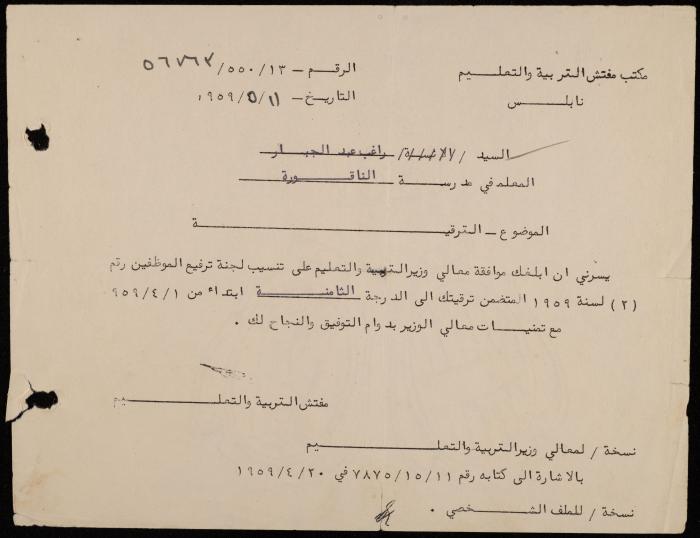 مكتب مفتش التربية والتعليم
الرقم – ٥٥٠/١٣/٥٦٧٦٣
نابلس
التاريخ – ١١/٥/٩٥٩
السيد / الانسة/ راغب عبد الجبار
المعلم في مدرسة الناقورة
الموضوع – الترقية
يسرني ان ابلغك موافقة معالي وزير التربية والتعليم على تنسيب لجنة ترفيع الموظفين رقم
(٢) لسنة ١٩٥٩ المتضمن ترقيتك الى الدرجة الثامنة ابتداء من ٩٥٩/٤/١
مع تمنيات معالي الوزير بدوام التوفيق والنجاح لك .
مفتش التربية والتعليم
نسخة / لمعالي وزير التربية والتعليم
بالاشارة الى كتابه رقم ٧٨٧٥/١٥/١١ في ١٩٥٩/٤/٢٠
نسخة / للملف الشخصي .